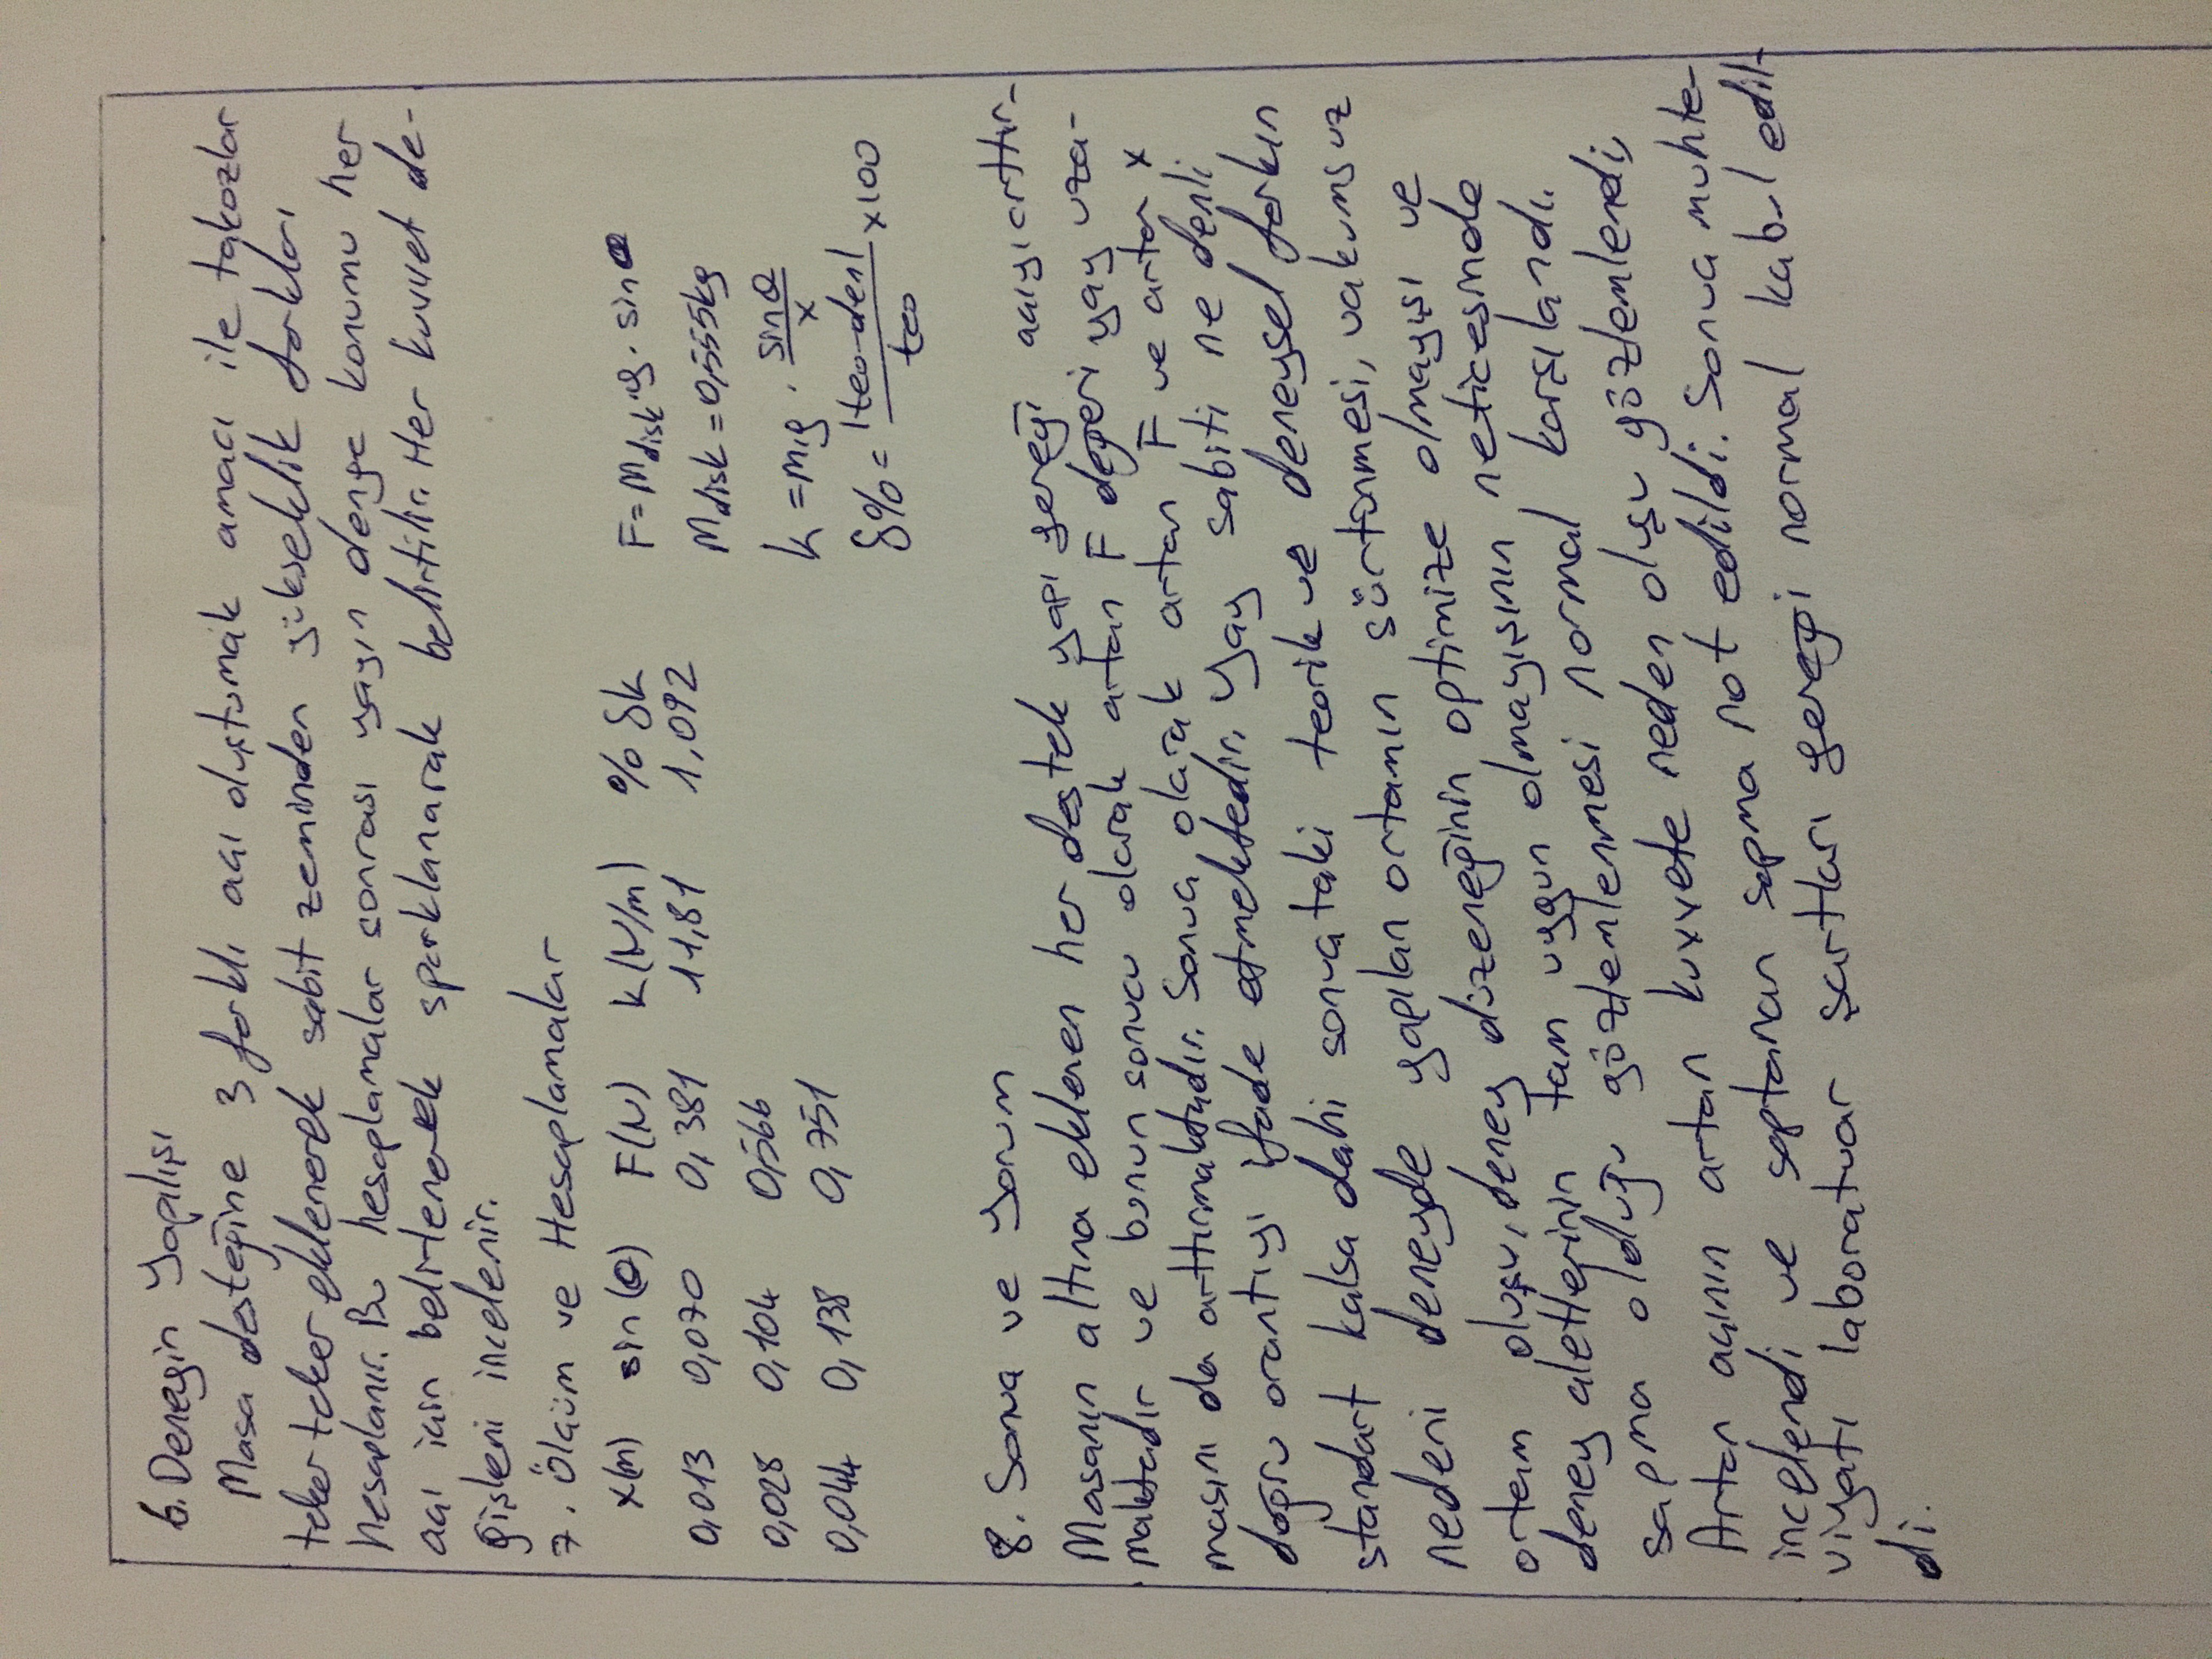 6. Deneyin Yapılışı
Masa desteğine 3 farklı açı oluşturmak amacı ile takozlar
teker teker eklenerek sabit zeminden yükseklik farkları
hesaplanır. Bu hesaplamalar sonrası yayın denge konumu her
açı için belirlenerek sparklanarak belirtilir. Her kuvvet de-
ğişkeni incelenir.
7. Ölçüm ve Hesaplamalar
x(m) sin(θ) F(N) k(N/m) % δk F = Mdisk.g. sinθ
0,013 0,070 0,381 11,81 1,092 Mdisk = 0,555kg
0,028 0,104 0,566 k = m.g . sinθ/x
0,044 0,138 0,751 δ% = |teo-den|/teo x100
8. Sonuç ve Yorum
Masanın altına eklenen her destek yapı gereği açıyı arttır-
maktadır ve bunun sonucu olarak artan F değeri yay uza-
masını da arttırmaktadır. Sonuç olarak artan F ve artan x
doğru orantıyı ifade etmektedir. Yay sabiti ne denli
standart kalsa dahi sonuçtaki teorik ve deneysel farkın
nedeni deneyde yapılan ortamın sürtünmesi, vakumsuz
ortam oluşu, deney düzeneğinin optimize olmayışı ve
deney aletlerinin tam uygun olmayışının neticesinde
sapma olduğu gözlemlenmesi normal karşılandı.
Artan açının artan kuvvete neden oluşu gözlemlendi,
incelendi ve saptanan sapma not edildi. Sonuç muhte-
viyatı laboratuar şartları gereği normal kabul edil-
di.